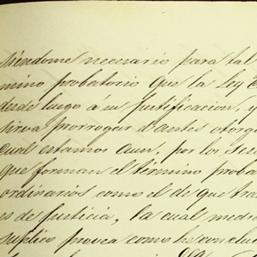 siendome necesario para tal
mino probatorio que la Ley
desde luego á su justificacion, y
sirva prorrogar d'antes otorg
cual estamos aun, por los
que forman el termino proba
ordinarios como el de que tra
es de justicia, la cual med
suplico provea como he conclui